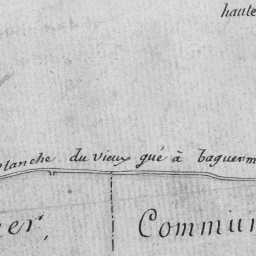 haute
planche du vieux gué à baguerm
er, Commun